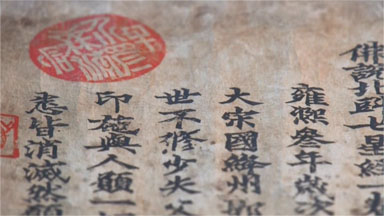 佛說北斗七星經一
雍熙叁年歲次
大宋國絳州
世不修少失父
印 與人願一
悉皆消滅然願